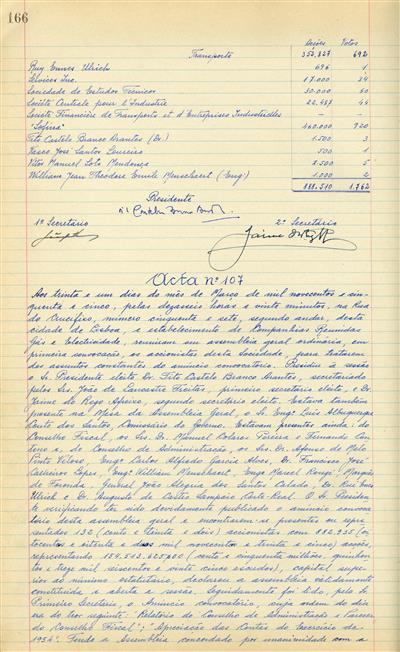 166
Acções Votos
Transporte 352,827 692
Ruy Ennes Ulrich 696 1
Services Inc. 17.000 34
Sociedade de Estudos Técnicos 30.000 60
Société Centrale pour l'Industrie 22.487 44
Société Financière de Transports et d'Entreprises Industrielles — —
"Sofina" 460.000 920
Tito Castelo Branco Arantes (Dr.) 1.500 3
Vasco José Santos 500 1
Vitor Manuel Lobo Mendonça 2.500 5
William Jean Théodore Emile Messchaert (Engº) 1.000 2
888.510 1.762
Presidente
1º Secretário 2º Secretário
Acta nº 107
Aos trinta e um dias do mês de Março de mil novecentos e cin-
quenta e cinco, pelas dezasseis horas e vinte minutos, na Rua
do Crucifixo, número cinquenta e sete, segundo andar, desta
cidade de Lisboa, e estabelecimento de Companhias Reunidas
Gás e Electricidade, reuniram em assembleia geral ordinária, em
primeira convocação, os accionistas desta Sociedade, para tratarem
dos assuntos constantes do anúncio convocatório. Presidiu à sessão
o Sr. Presidente eleito Dr. Tito Castelo Branco Arantes, secretariado
pelos Srs. João de Lencastre Freitas, primeiro secretário eleito, e Dr.
Jaime do Rego Afreixo, segundo secretário eleito. Estava também
presente na Mesa da Assembleia Geral, o Sr. Engº Luís Albuquerque
Couto dos Santos, Comissário do Governo. Estavam presentes ainda: do
Conselho Fiscal, os Srs. Dr. Manuel Colares Pereira e Fernando
e, do Conselho de Administração, os Srs. Dr. Afonso de Melo
Pinto Veloso, Engº Carlos Alfredo Garcia Alves, Dr. Francisco José
Caldeiros Lopes, Engº William Messchaert, Engº Marcel Marquês
de Fronda, Gabriel João Alegria dos Santos Calado, Dr. Rui Ennes
Ulrich e Dr. Augusto de Castro Sampaio Corte-Real. O Sr. Presiden-
te verificando ter sido devidamente publicado o anúncio convoca-
tório desta assembleia geral e encontrarem-se presentes ou repre-
sentados 132 (cento e trinta e dois) accionistas com 882.935 (oi-
tocentas e oitenta e duas mil novecentas e trinta e cinco) acções,
representando 150.513.625$00 (cento e cinquenta milhões, quinhen-
tos e treze mil seiscentos e vinte cinco escudos), capital supe-
rior ao mínimo estatutário, declarou a assembleia validamente
constituída e aberta a sessão. Seguidamente foi lido, pelo Sr.
Primeiro Secretário, o Anúncio convocatório, cuja ordem do dia
era do teor seguinte: "Relatório do Conselho de Administração e Parecer
do Conselho Fiscal"; "Apreciação das Contas do Exercício de
1954". Tendo a Assembleia concordado por unanimidade com a